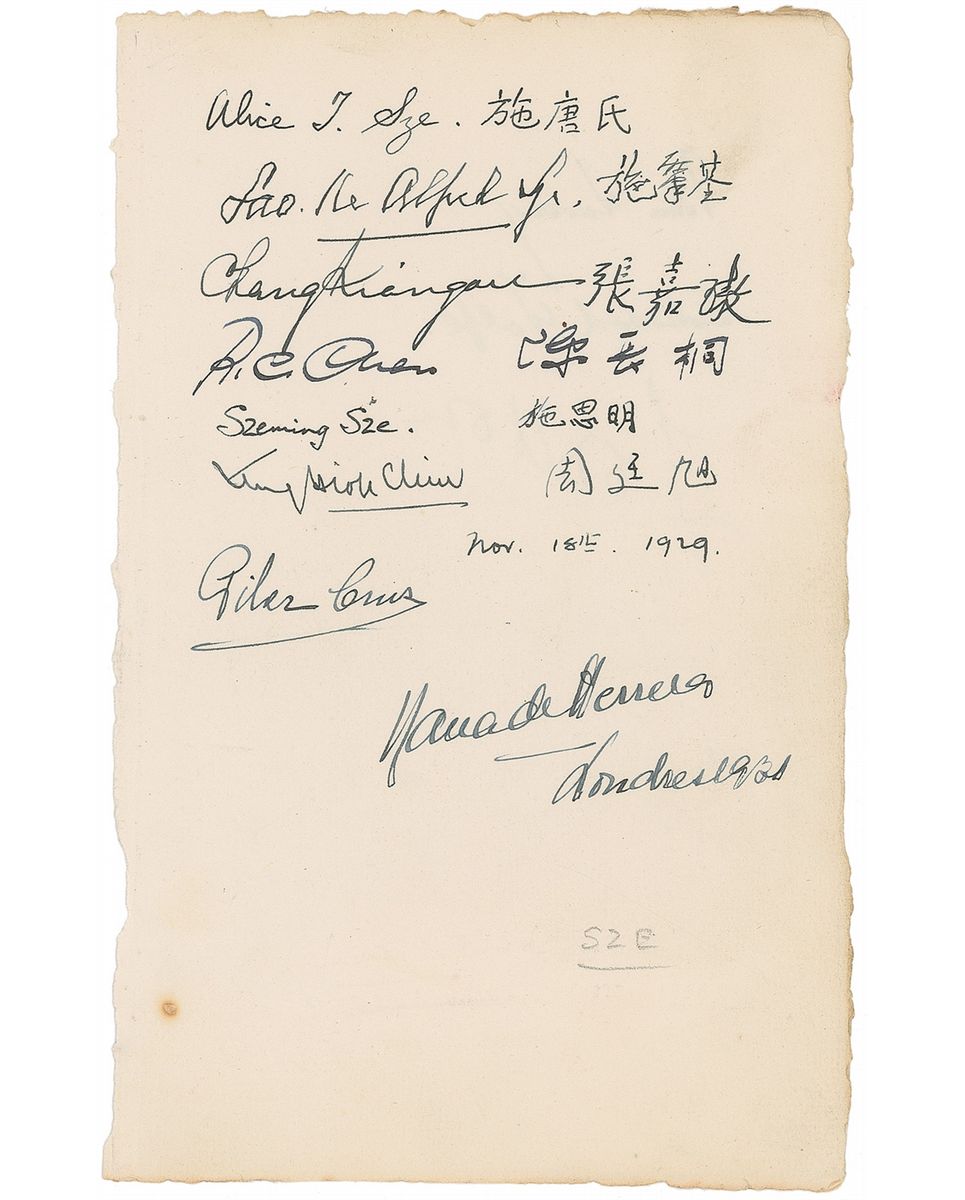 Alice T. Sze. 施唐氏
Sao. Ke Alfred Sze. 施肇基
Chang Kiangau 張嘉璈
C. Chen 陳長桐
Szeming Sze. 施思明
Teng Hiok Chiu 周廷旭
Nov. 18th. 1929.
Pilar Cruz
Nana de Herrera
Londres 1931
SZE